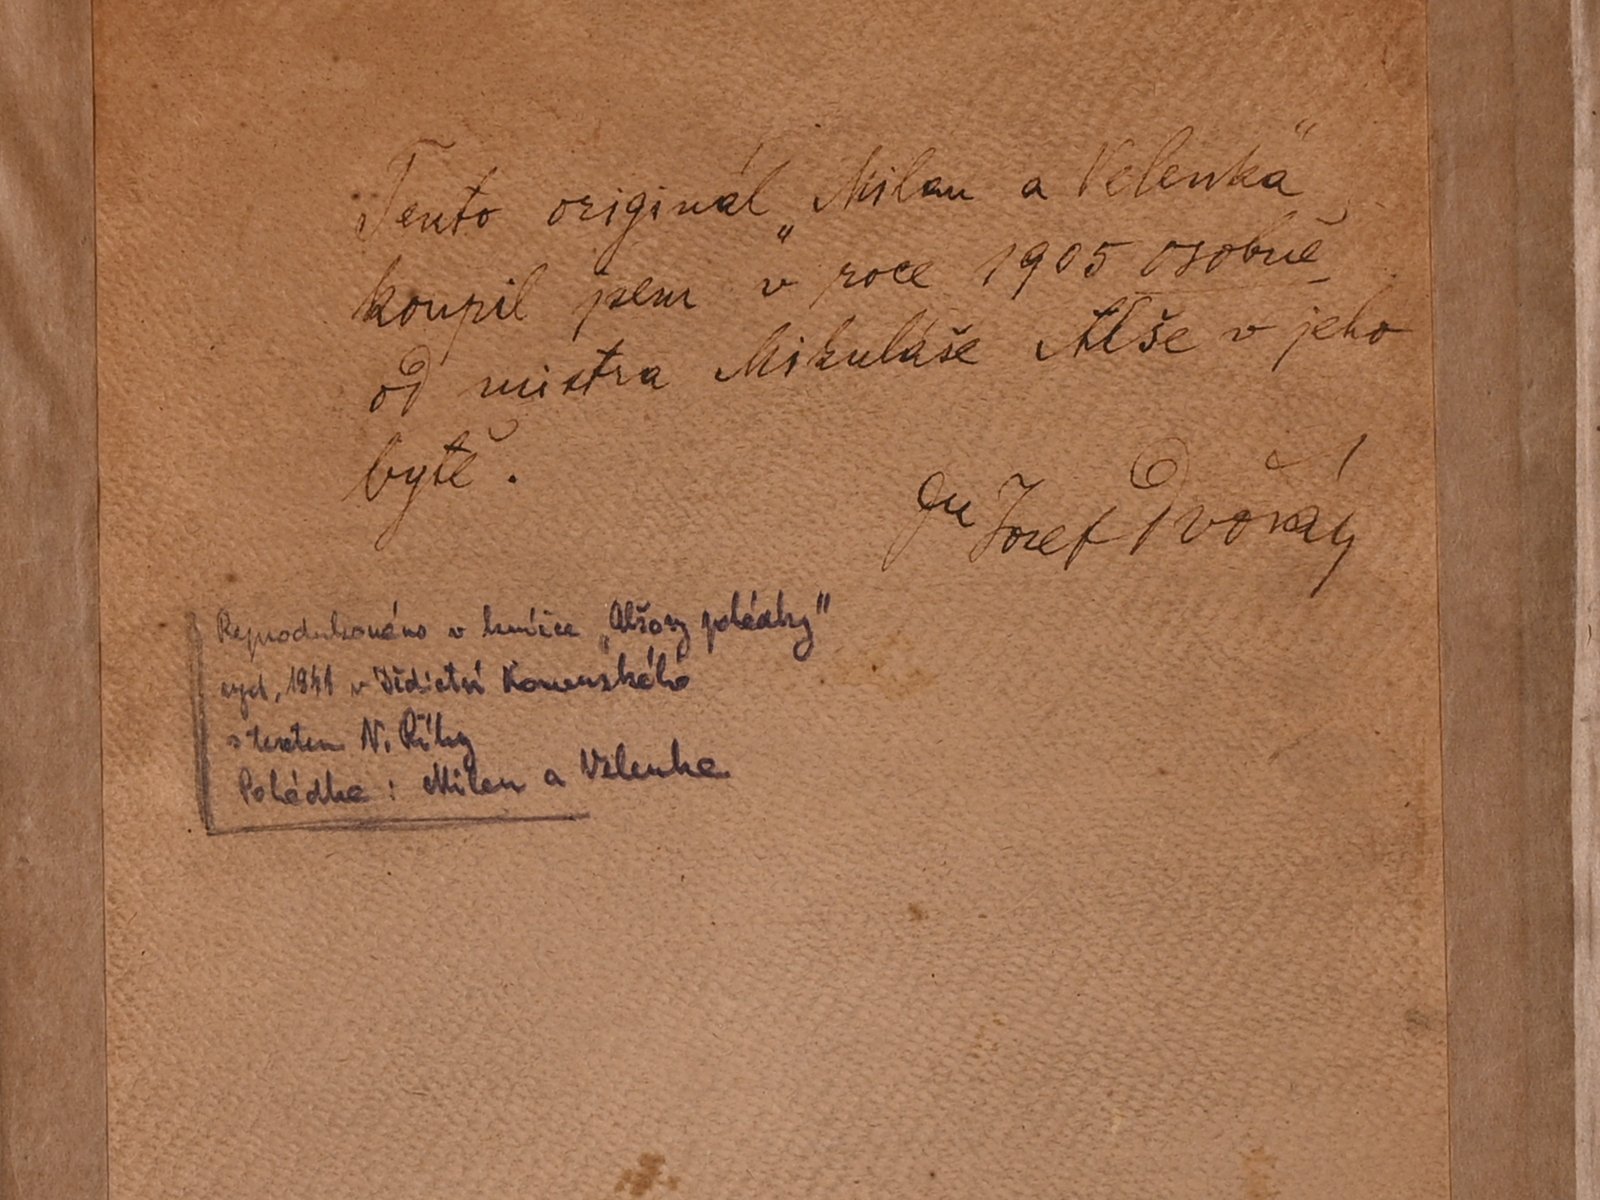 Tento originál „Milan a Velenka“
koupil jsem v roce 1905 osobně
od mistra Mikuláše Alše v jeho
bytě.
Josef Dvořák
Reprodukováno v knížce „Alšovy pohádky“
vyd. 1941 v Dědictví Komenského
s textem V. Říhy
Pohádka: Milan a Velenka